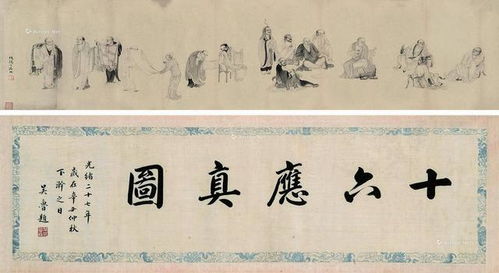 十六應真圖
光緒二十七年
歲在辛丑仲秋
下澣之日
吳魯題